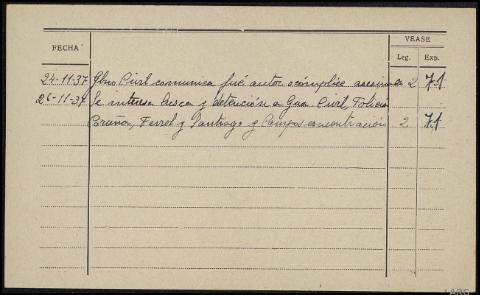 FECHA
VEASE
Leg. Exp.
24-11-37 Gbno Civil comunica fué autor o cómplice asesinatos 2 71
26-11-37 Se interesa busca y detención a Gua. Civil, Policia
Coruña, Ferrol y Santiago y Campos concentración 2 71